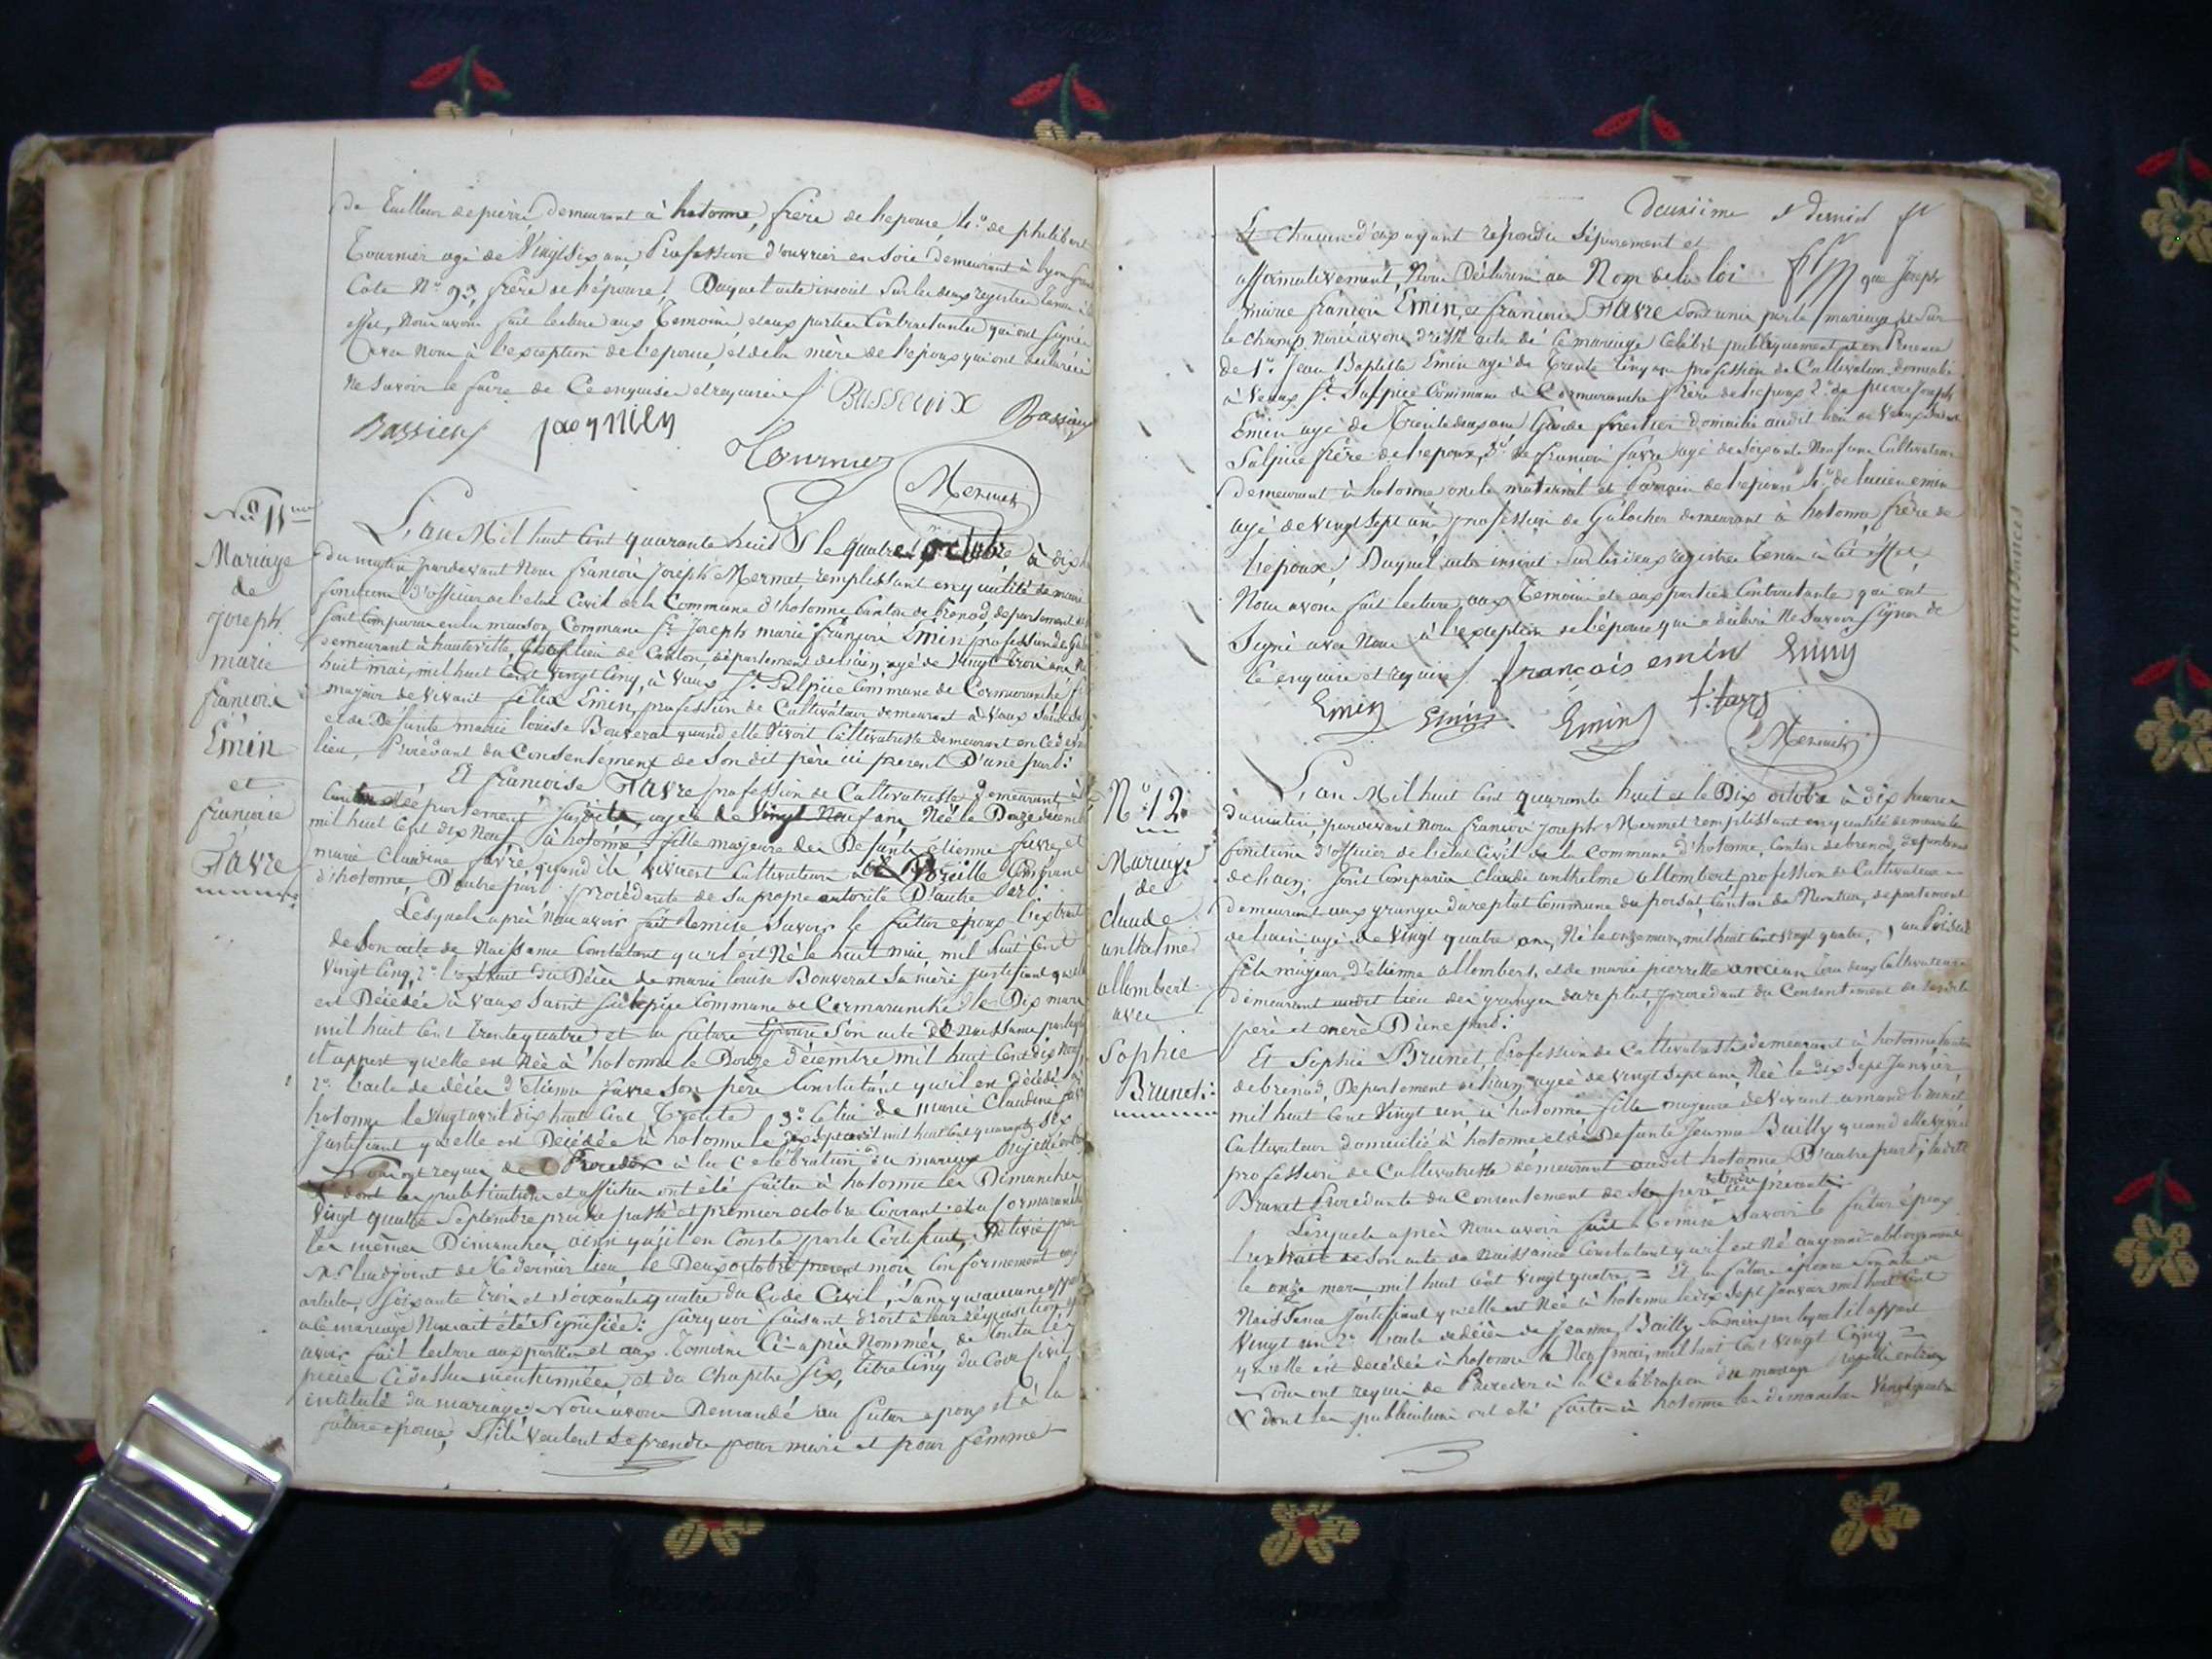 de Tailleur de pierre, demeurant à hotonne, frère de l'epouse, 4.º de philibert
Tournier agé de Vingt Six ans, Profession d'ouvrier en Soie demeurant à lyon grand
Cote N.º 93, frère de l'épouse. Duquel acte inscrit Sur les deux registres tenus à
effet, Nous avons fait lecture aux Temoins et aux parties Contractantes qui ont Signé
avec Nous à l'exception de l'epouse, et de la mère de l'epoux qui ont declaré
Ne Savoir le faire de Ce enquises et requises
Bassieux
Bassieux
Bassieux
Tournier
Mermet
N.º 11
Mariage
de
joseph
marie
françois
Emin
et
françoise
Favre
L'an Mil huit Cent quarante huit & le quatre octobre à dix h
du matin pardevant Nous françois Joseph Mermet, remplissant en qualité de maire
fonctions d'officier de l'etat Civil de la Commune d'hotonne Canton de brénod departement de
Sont Comparus en la maison Commune S.r Joseph marie françois Emin profession de
demeurant à hauteville Chef lieu de Canton, département de l'ain, agé de Vingt Trois ans Né
huit mai, mil huit Cent Vingt Cinq, à Vaux S.t Sulpice Commune de Cormaranche fi
majeur de Vivant felix Emin, profession de Cultivateur demeurant à Vaux Saint
et de Defunte marie louise Bouverat quand elle Vivoit Cultivatrisse demeurant en
lieu, Procédant du Consentement de Son dit père ici present D'une part:
Et françoise Favre profession de Cultivatrisse demeurant à
Canton et département Susdits, agée de Vingt Neuf ans Née le Douze decem
mil huit Cent dix Neuf à hotonne fille majeure des Defunts étienne favre et
marie Claudine favre, quand ils vivoient Cultivateurs à Commune
d'hotonne, D'autre part Procédante de Sa propre autorité D'autre Part:
Lesquels après Nous avoir fait Remise Savoir le futur époux l'extrait
de Son acte de Naissance Constatant qu'il est Né le huit mai, mil huit Cent
Vingt Cinq, 2.º l'extrait du Décès de marie louise Bouverat Sa mère Justifiant qu'elle
est Décédée à Vaux Saint Sulpice Commune de Cormaranche le Dix mars
mil huit Cent Trente quatre, et la future Epouse Son acte de Naissance par lequel
il appert qu'elle est Née à hotonne le Douze décembre mil huit Cent dix Neuf,
2.º l'acte de décès d'etienne favre Son père Constatant qu'il est décédé à
hotonne le vingt avril dix huit Cent Trente 3.º Celui de marie Claudine favre
Justifiant qu'elle est Décédée à hotonne le dix Sept avril mil huit Cent quarante Six
Nous ont requis de Procéder à la Célébration du mariage Projetté
& dont les publications et affiches ont été faites à hotonne les Dimanches
Vingt quatre Septembre proche passé et premier octobre Courant et à Cormaranche
les mêmes Dimanches, ainsi qu'il en Conste par le Certificat, Délivré par
M.r l'adjoint de Ce dernier lieu le Deux octobre present mois Conformement aux
articles, Soixante trois et Soixante quatre du Code Civil, Sans qu'aucune opposition
a Ce mariage Nous ait été Signifiée: Sur quoi faisant droit à leur réquisition
avoir fait lecture aux parties et aux Temoins Ci-après Nommés, de toutes les
pièces Ci dessus mentionnées et du Chapitre Six, titre Cinq du Code Civil
intitulé du mariage, Nous avons Demandé au futur epoux et à la
future epouse, S'ils Veulent Se prendre pour mari et pour femme
Deuxième et dernier
Et Chacun d'eux ayant répondu Séparement et
affirmativement, Nous Déclarons au Nom de la loi que Joseph
marie françois Emin, et françoise Favre Sont unis par le mariage, et Sur
le Champ Nous avons dressé acte de Ce mariage Celébré publiquement et en Presence
de 1.º Jean Baptiste Emin agé de Trente Cinq ans profession de Cultivateur domicilié
à Vaux S.t Sulpice Commune de Cormaranche frère de l'epoux 2.º de pierre Joseph
Emin agé de Trente deux ans Garde forestier domicilié audit lieu de Vaux Saint
Sulpice frère de l'epoux, 3.º de françois favre agé de Soixante Neuf ans Cultivateur
demeurant à hotonne oncle maternel et Parrain de l'epouse 4.º de lucien emin
agé de Vingt Sept ans, profession de Galocher demeurant à hotonne, frère de
l'epoux. Duquel acte inscrit Sur les deux registres Tenus à Cet effet,
Nous avons fait lecture, aux Temoins et aux parties Contractantes qui ont
Signé avec Nous à l'exception de l'épouse qui a declaré Ne Savoir Signer de
Ce enquise et requise
françois emin Emin
Emin Emin Emin f. favre
Mermet
N.º 12
Mariage
de
Claude
anthelme
allombert
avec
Sophie
Brunet:
L'an Mil huit Cent quarante huit et le Dix octobre à dix heures
du matin, pardevant Nous françois Joseph Mermet remplissant en qualité de maire les
fonctions d'officier de l'état Civil de la Commune d'hotonne, Canton de brenod, departement
de l'ain; Sont Comparus Claude anthelme allombert profession de Cultivateur
demeurant aux granges Commune du poisat, Canton de Nantua, departement
de l'ain, agé de Vingt quatre ans, Né le onze mars, mil huit Cent Vingt quatre, au Poisat
fils majeur d'étienne allombert, et de marie pierrette ancian tous deux Cultivateurs
demeurant audit lieu des granges procédant du Consentement de Sesdits
père et mère D'une part:
Et Sophie Brunet, Profession de Cultivatrisse demeurant à hotonne, Canton
de brénod, Département de l'ain, agée de Vingt Sept ans, Née le dix Sept Janvier,
mil huit Cent Vingt un à hotonne fille majeure de Vivant amand brunet,
Cultivateur domicilié à hotonne et de Defunte Jeanne Bailly quand elle vivoit
profession de Cultivatrisse demeurant audit hotonne D'autre part; ladite
Brunet Procédante du Consentement de Son père ici présent:
Lesquels après Nous avoir fait Remise Savoir le futur époux
l'extrait de Son acte de Naissance Constatant qu'il est Né au grand abbergement
le onze mars, mil huit Cent Vingt quatre = Et la future épouse Son acte de
Naissance Justifiant qu'elle est Née à hotonne le dix Sept Janvier mil huit Cent
Vingt un 2.º l'acte de décès de Jeanne Bailly Sa mère par lequel il appert
qu'elle est decédée à hotonne le Neuf mai, mil huit Cent Vingt Cinq =
Nous ont requis de Proceder à la Celébration du mariage Projetté entr'eux
& dont les publications ont été faites à hotonne les dimanches Vingt quatre
Naissances